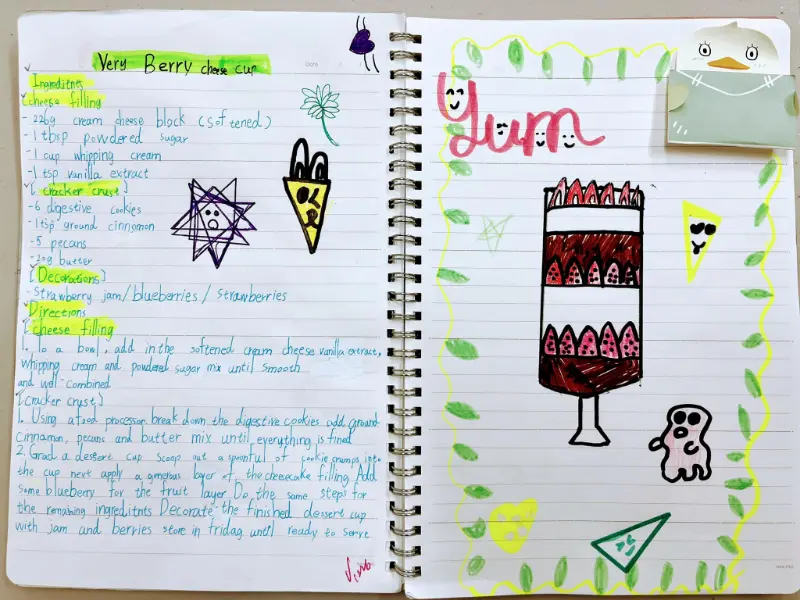 Very Berry cheese cup
Ingreditnts
[cheese filling
- 226g cream cheese block (softened)
- 1 tbsp powdered sugar
- 1 cup whipping cream
- 1 tsp vanilla extract
[cracker crust]
- 6 digestive cookies
- 1 tsp ground cinnamon
- 5 pecans
- 20g butter
[Decorations]
- Strawberry jam/blueberries/strawberries
Directions
[cheese filling
1. To a bowl, add in the softened cream cheese vanilla extract,
whipping cream and powdered sugar mix until smooth
and well-combined
[Cracker crust]
1. Using a food processor break down the digestive cookies add ground
cinnamon, pecans and butter mix until everything is fined
2. Grad a dessert cup scoop out a spoonful of cookie crumps into
the cup next apply a generous layer of the cheesecake filling Add
some blueberry for the fruit layer Do the same steps for
the remaining ingreditnts Decorate the finished dessert cup
with jam and berries store in fridag until ready to serve
Yum